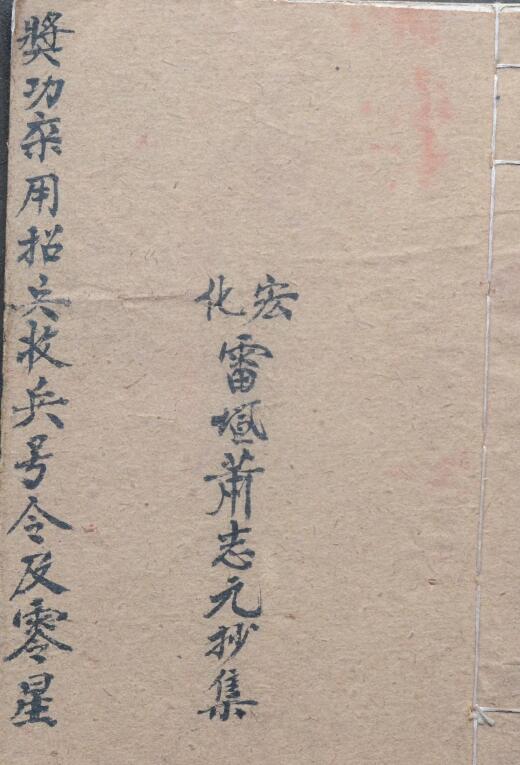 宏化
雷萧志元抄集
獎功用招兵收兵号令及零星